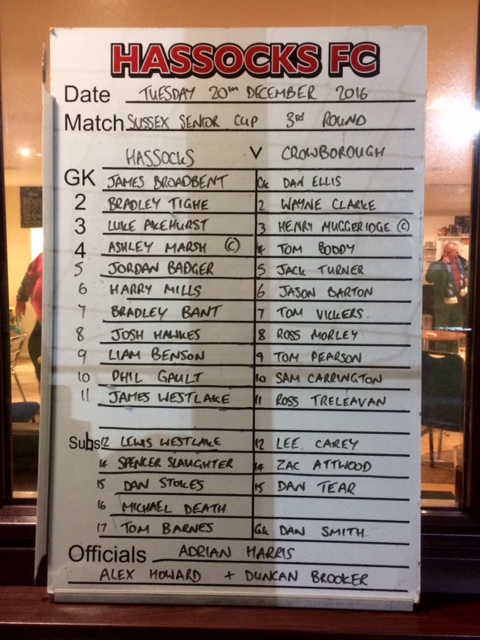 HASSOCKS FC
Date TUESDAY 20th DECEMBER 2016
Match SUSSEX SENIOR CUP 3rd ROUND
HASSOCKS V CROWBOROUGH
GK JAMES BROADBENT GK DAN ELLIS
2 BRADLEY TIGHE 2 WAYNE CLARKE
3 LUKE AKEHURST 3 HENRY MUGGERIDGE ©
4 ASHLEY MARSH © 4 TOM BODDY
5 JORDAN BADGER 5 JACK TURNER
6 HARRY MILLS 6 JASON BARTON
7 BRADLEY BANT 7 TOM VICKERS
8 JOSH HAWKES 8 ROSS MORLEY
9 LIAM BENSON 9 TOM PEARSON
10 PHIL GAULT 10 SAM CARRINGTON
11 JAMES WESTLAKE 11 ROSS TRELEAVAN
Subs 12 LEWIS WESTLAKE 12 LEE CAREY
14 SPENCER SLAUGHTER 14 ZAC ATTWOOD
15 DAN STOKES 15 DAN TEAR
16 MICHAEL DEATH
17 TOM BARNES GK DAN SMITH
Officials ADRIAN HARRIS
ALEX HOWARD + DUNCAN BROOKER